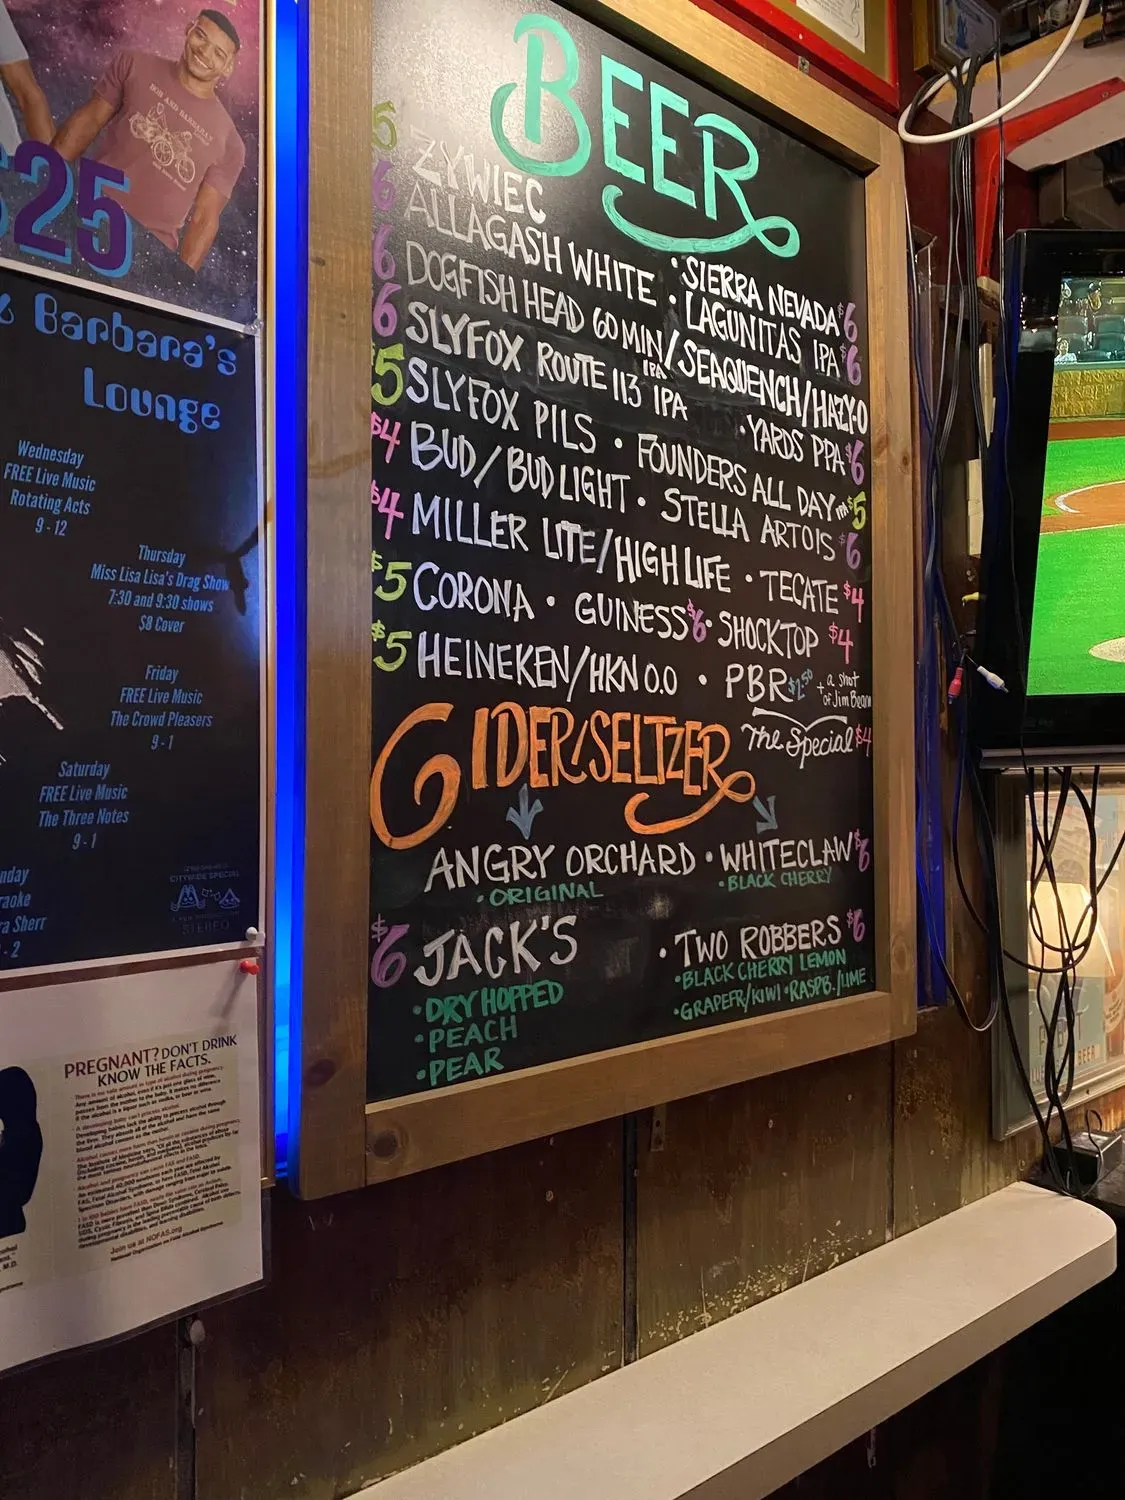 $25
BOB AND BARBARA'S
Barbara's
Lounge
Wednesday
FREE Live Music
Rotating Acts
9 - 12
Thursday
Miss Lisa Lisa's Drag Show
7:30 and 9:30 shows
$8 Cover
Friday
FREE Live Music
The Crowd Pleasers
9 - 1
Saturday
FREE Live Music
The Three Notes
9 - 1
CITYWIDE SPECIAL
STEREO
PREGNANT? DON'T DRINK
KNOW THE FACTS.
Join us at NOFAS.org
National Organization on Fetal Alcohol Syndrome
BEER
5 ZYWIEC • SIERRA NEVADA $6
6 ALLAGASH WHITE • LAGUNITAS IPA $6
6 DOGFISH HEAD 60 MIN IPA/SEAQUENCH/HAZY-O
6 SLYFOX ROUTE 113 IPA • YARDS PPA $6
$5 SLYFOX PILS • FOUNDERS ALL DAY IPA $5
$4 BUD/BUDLIGHT • STELLA ARTOIS $6
$4 MILLER LITE/HIGH LIFE • TECATE $4
$5 CORONA • GUINESS $6 • SHOCKTOP $4
$5 HEINEKEN/HKN 0.0 • PBR $2.50 + a shot of Jim Beam
The Special $4
CIDER/SELTZER
ANGRY ORCHARD • WHITECLAW $6
• ORIGINAL • BLACK CHERRY
$6 JACK'S • TWO ROBBERS $6
• DRY HOPPED • BLACK CHERRY LEMON
• PEACH • GRAPEFR/KIWI • RASPB./LIME
• PEAR
BEER